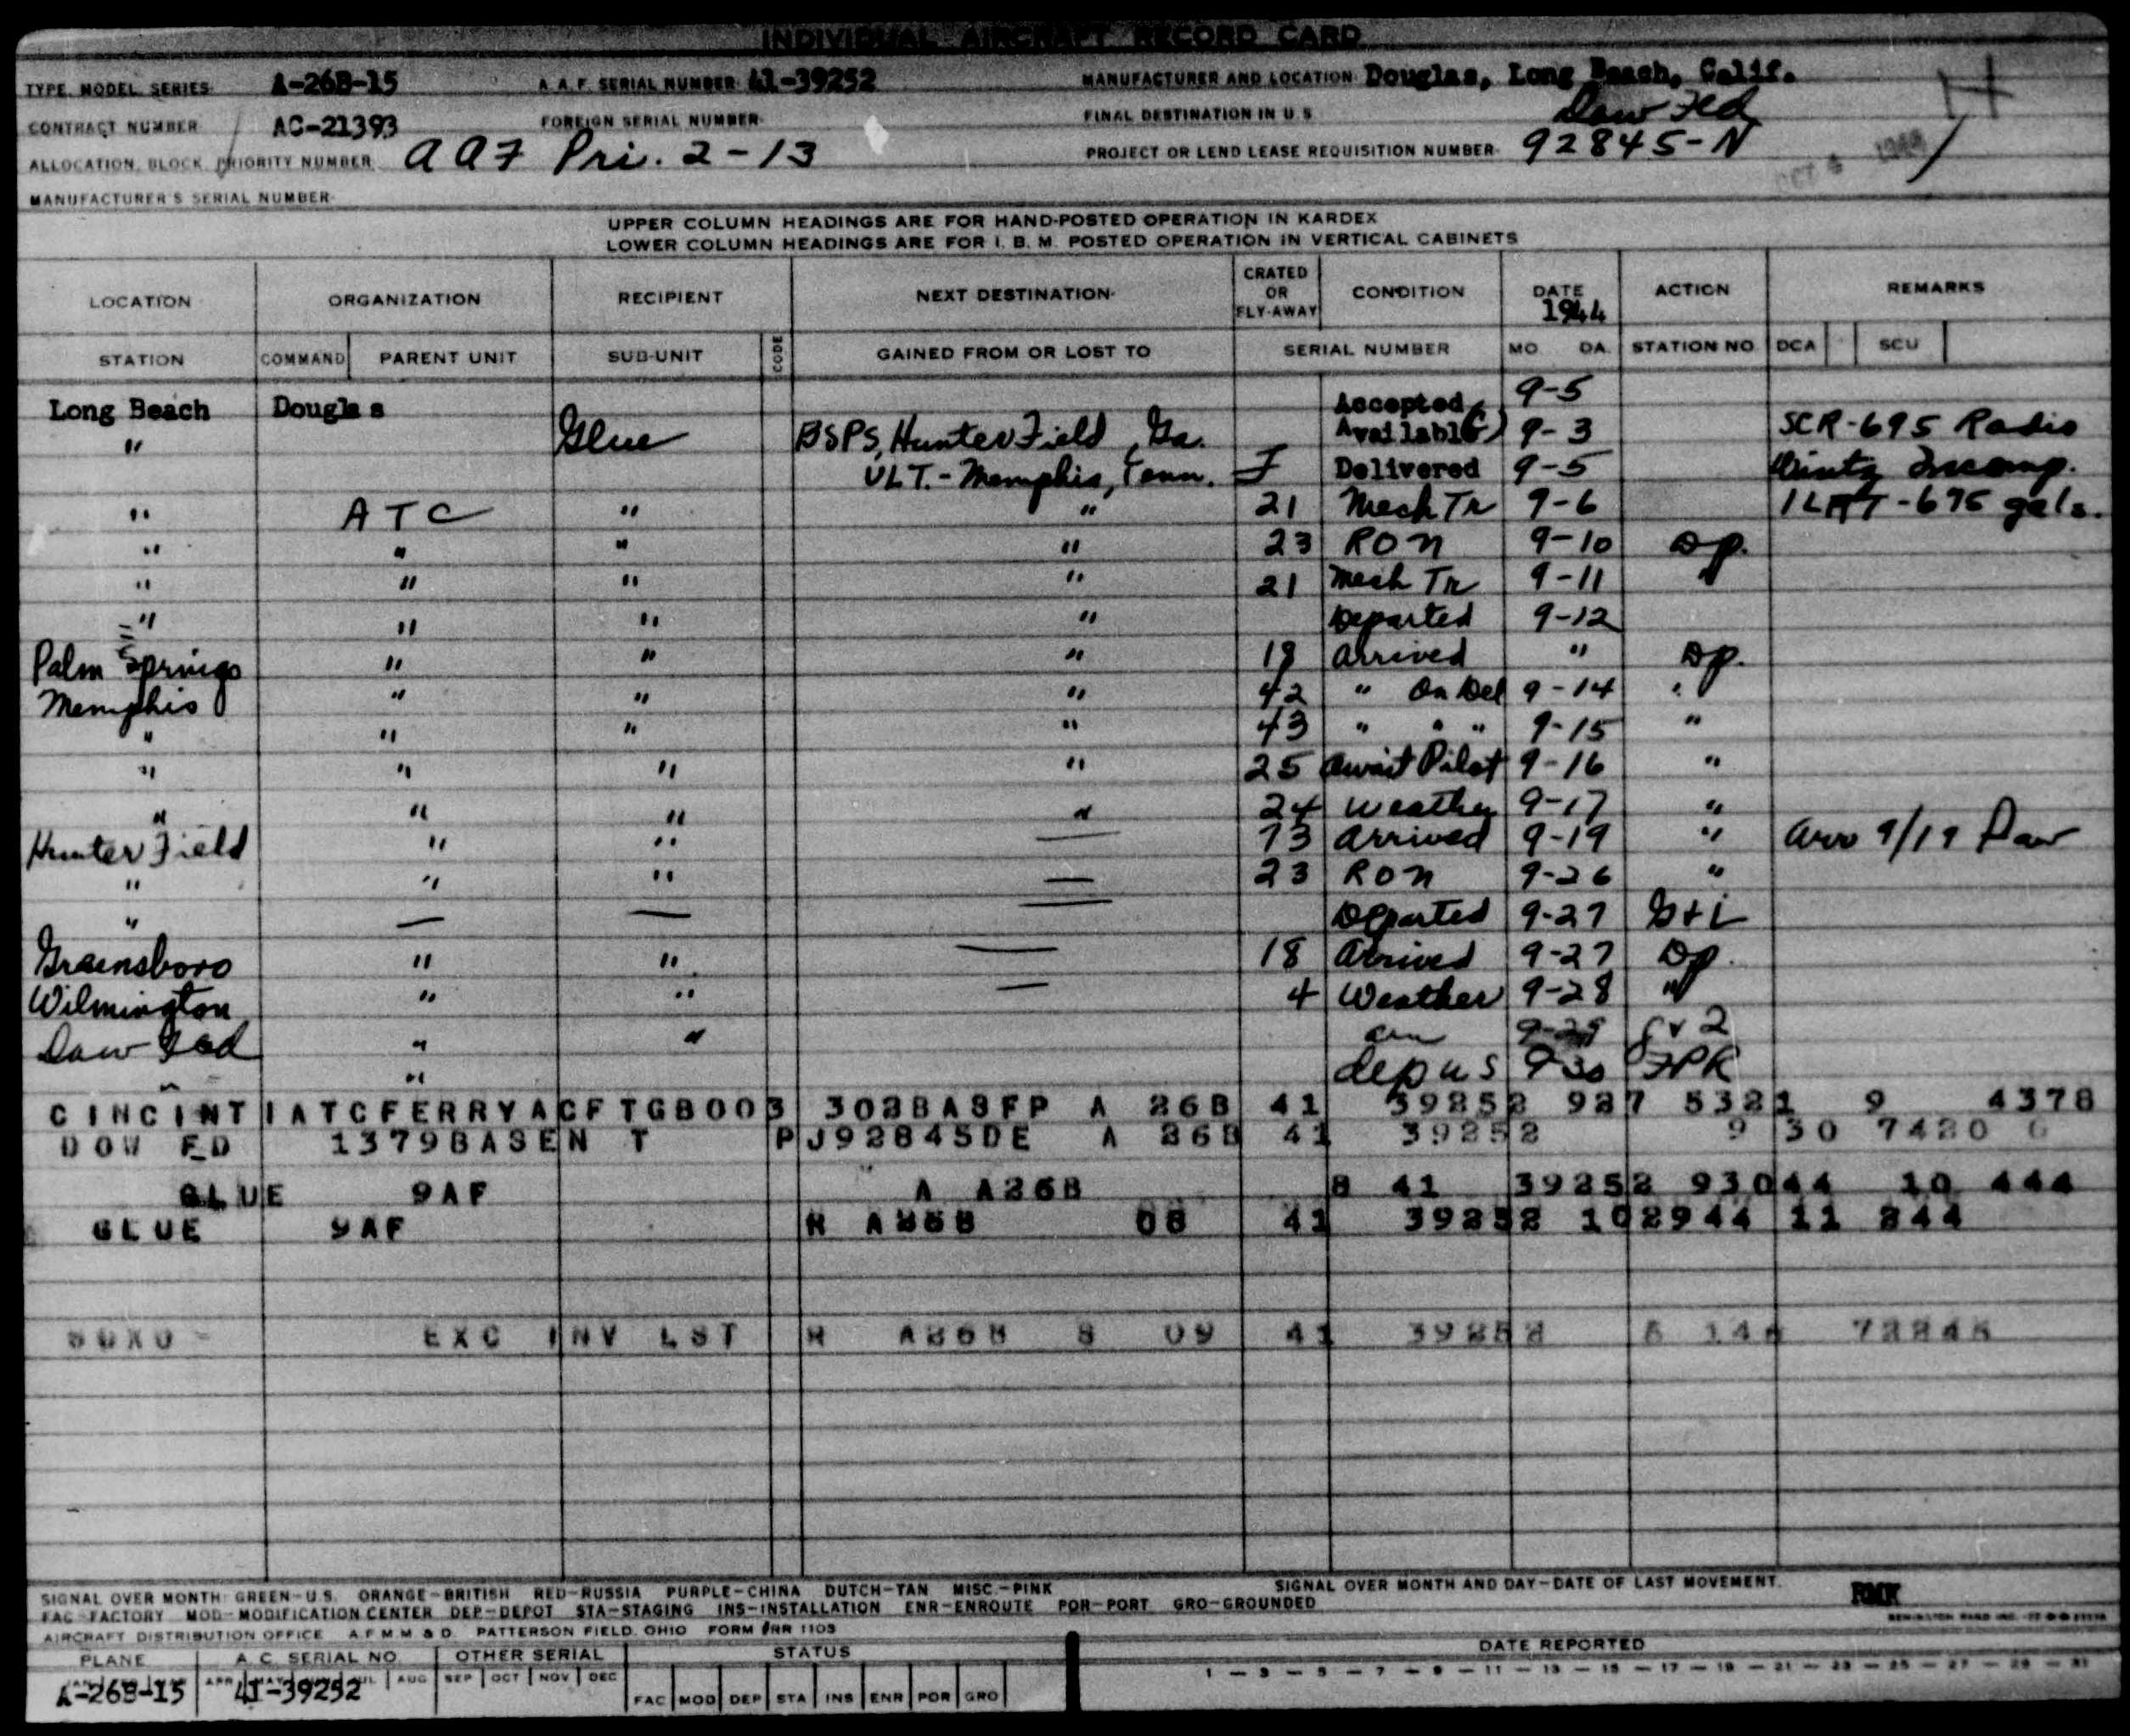 INDIVIDUAL AIRCRAFT RECORD CARD
TYPE, MODEL, SERIES A-26B-15 A.A.F. SERIAL NUMBER 41-39252 MANUFACTURER AND LOCATION Douglas, Long Beach, Calif.
CONTRACT NUMBER AC-21393 FOREIGN SERIAL NUMBER FINAL DESTINATION IN U S Dow Fld
ALLOCATION, BLOCK, PRIORITY NUMBER AAF Pri. 2-13 PROJECT OR LEND LEASE REQUISITION NUMBER 92845-N
MANUFACTURER'S SERIAL NUMBER
UPPER COLUMN HEADINGS ARE FOR HAND-POSTED OPERATION IN KARDEX
LOWER COLUMN HEADINGS ARE FOR I. B. M. POSTED OPERATION IN VERTICAL CABINETS
LOCATION ORGANIZATION RECIPIENT NEXT DESTINATION CRATED OR FLY-AWAY CONDITION DATE 1944 ACTION REMARKS
STATION COMMAND PARENT UNIT SUB-UNIT CODE GAINED FROM OR LOST TO SERIAL NUMBER MO. DA. STATION NO. DCA SCU
Long Beach Douglas Accepted 9-5
" Glue BSPS, Hunter Field, Ga. Available 9-3 SCR-695 Radio
ULT.-Memphis, Tenn. F Delivered 9-5
" ATC " " 21 Mech Tr 9-6 675 gals.
" " " " 23 RON 9-10 Dp.
" " " " 21 Mech Tr 9-11
" " " " Departed 9-12
Palm Springs " " " 18 Arrived " Dp.
Memphis " " " 42 " On Del 9-14 "
" " " " 43 " " " 9-15 "
" " " " 25 Await Pilot 9-16 "
" " " " 24 Weather 9-17 "
Hunter Field " " — 73 Arrived 9-19 " Arr 9/19
" " " — 23 RON 9-26 "
" — — — Departed 9-27 G+L
Greensboro " " — 18 Arrived 9-27 Dp.
Wilmington " " — 4 Weather 9-28 "
Dow Fld " " 9-29
" " dep US 9-30 FPK
CINCINTI ATCFERRYACFTGB003 302BASFP A 26B 41 39252 927 5321 9 4378
DOW FD 1379BASEN T PJ92845DE A 26B 41 39252 9 30 7420 6
GLUE 9AF A A26B 8 41 39252 93044 10 444
GLUE 9AF R A26B 08 41 39252 102944 11 844
EXC INV LST R A26B 8 09 41 39252
SIGNAL OVER MONTH: GREEN-U.S. ORANGE-BRITISH RED-RUSSIA PURPLE-CHINA DUTCH-TAN MISC.-PINK SIGNAL OVER MONTH AND DAY-DATE OF LAST MOVEMENT.
FAC-FACTORY MOD-MODIFICATION CENTER DEP-DEPOT STA-STAGING INS-INSTALLATION ENR-ENROUTE POR-PORT GRO-GROUNDED RMK
AIRCRAFT DISTRIBUTION OFFICE A.F.M.M. & D. PATTERSON FIELD, OHIO FORM RR 1103
PLANE A. C. SERIAL NO. OTHER SERIAL STATUS DATE REPORTED
A-26B-15 41-39252 AUG SEP OCT NOV DEC FAC MOD DEP STA INS ENR POR GRO 1 — 3 — 5 — 7 — 9 — 11 — 13 — 15 — 17 — 19 — 21 — 23 — 25 — 27 — 29 — 31